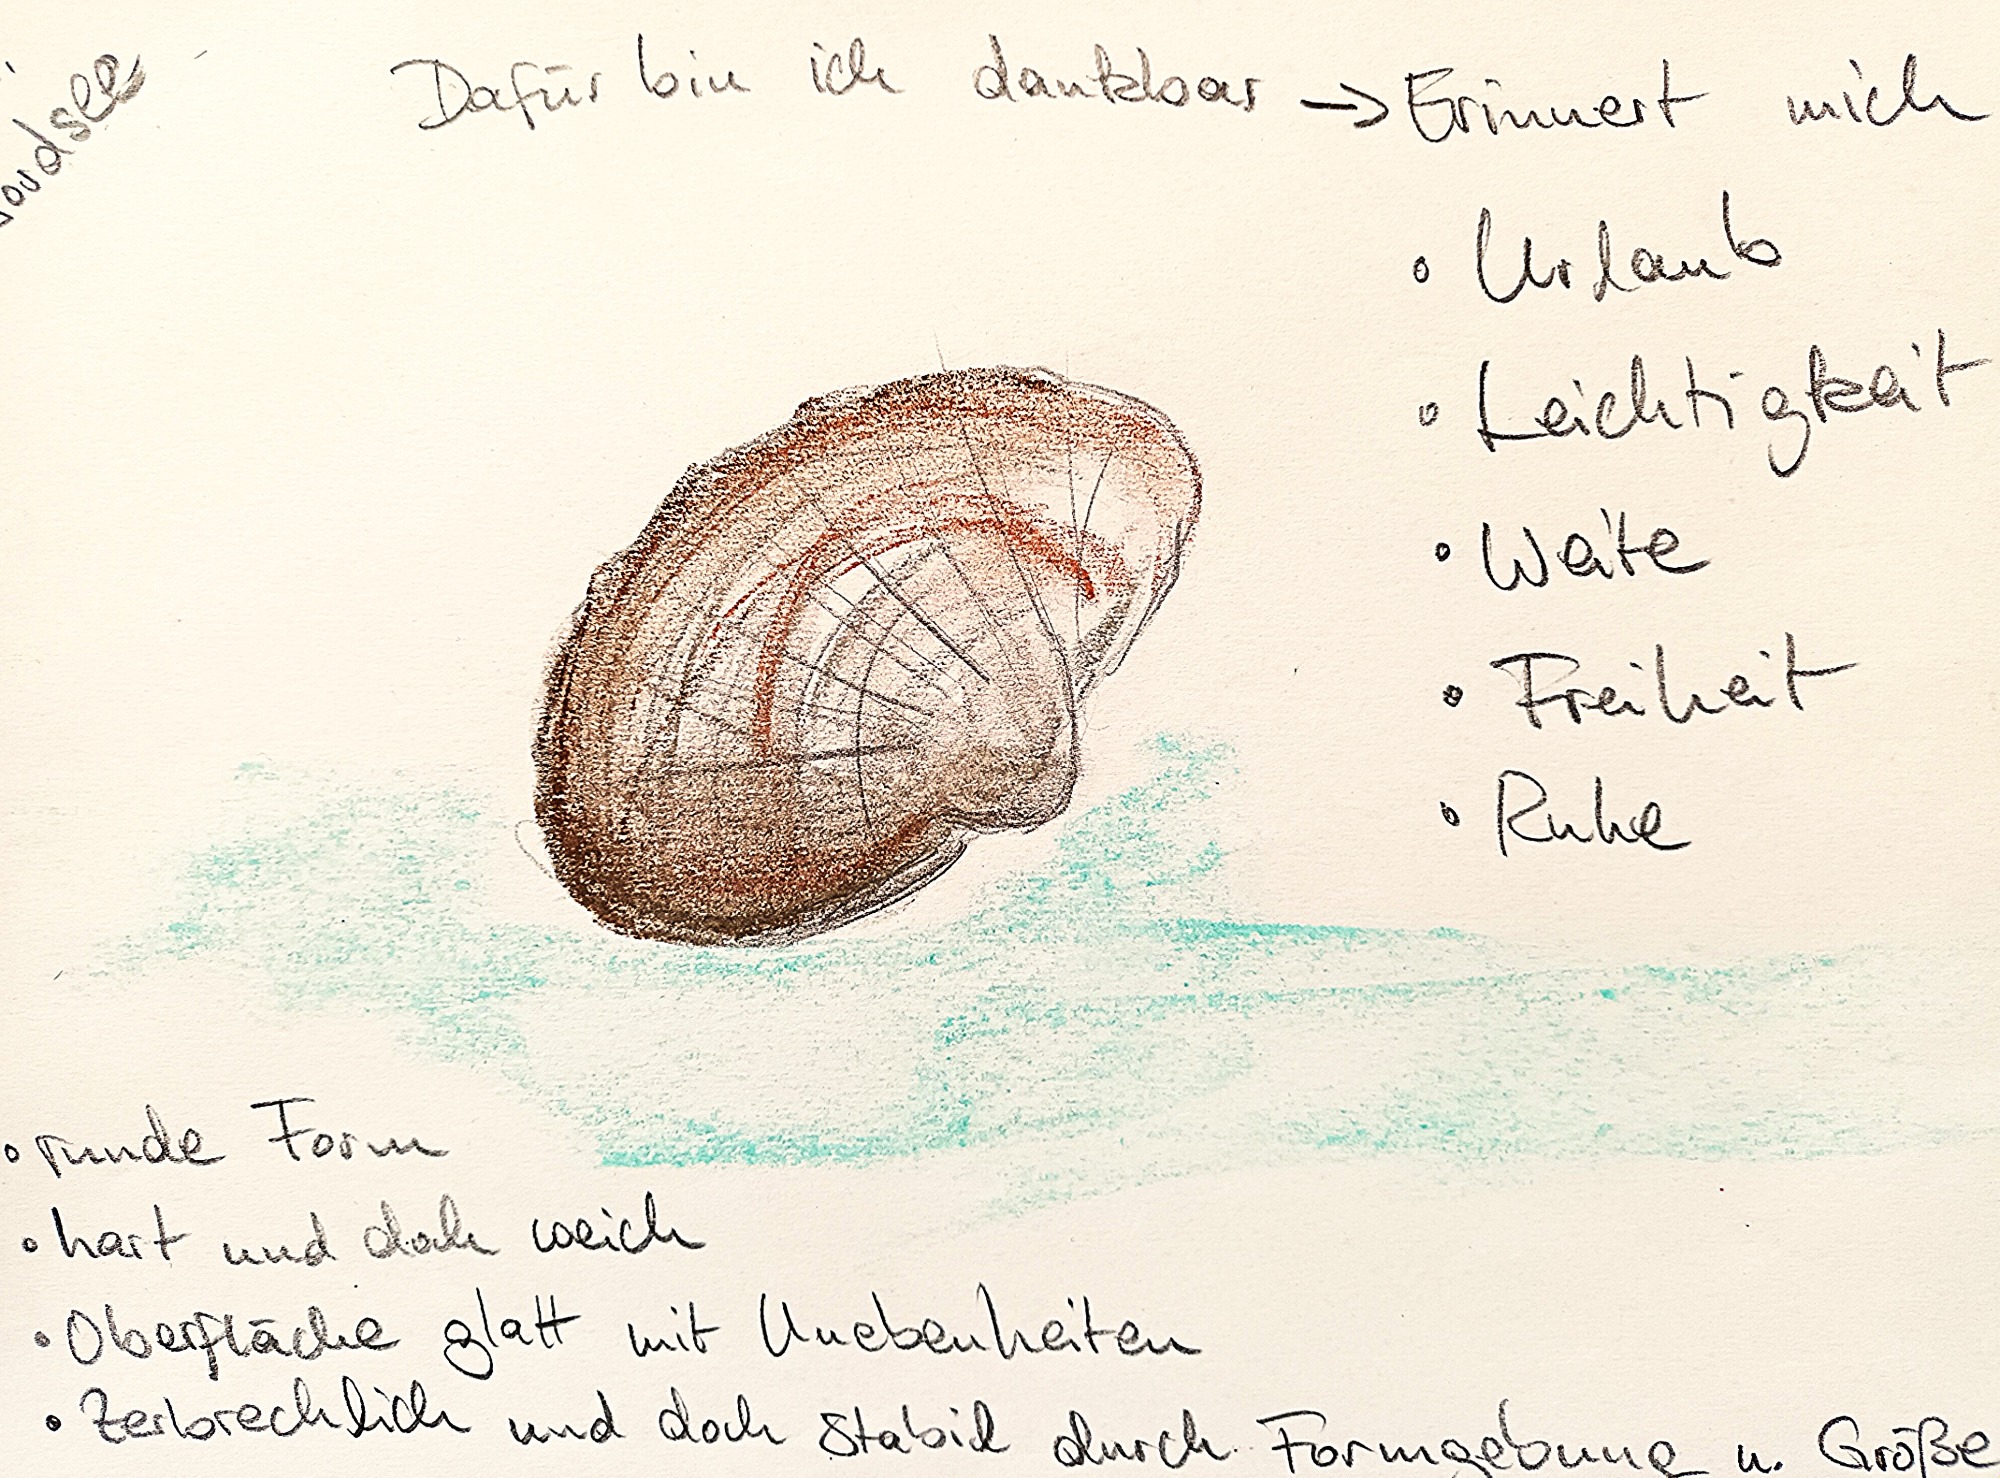 Dafür bin ich dankbar → Erinnert mich
• Urlaub
• Leichtigkeit
• Weite
• Freiheit
• Ruhe
• runde Form
• hart und doch weich
• Oberfläche glatt mit Unebenheiten
• Zerbrechlich und doch stabil durch Formgebung u. Größe